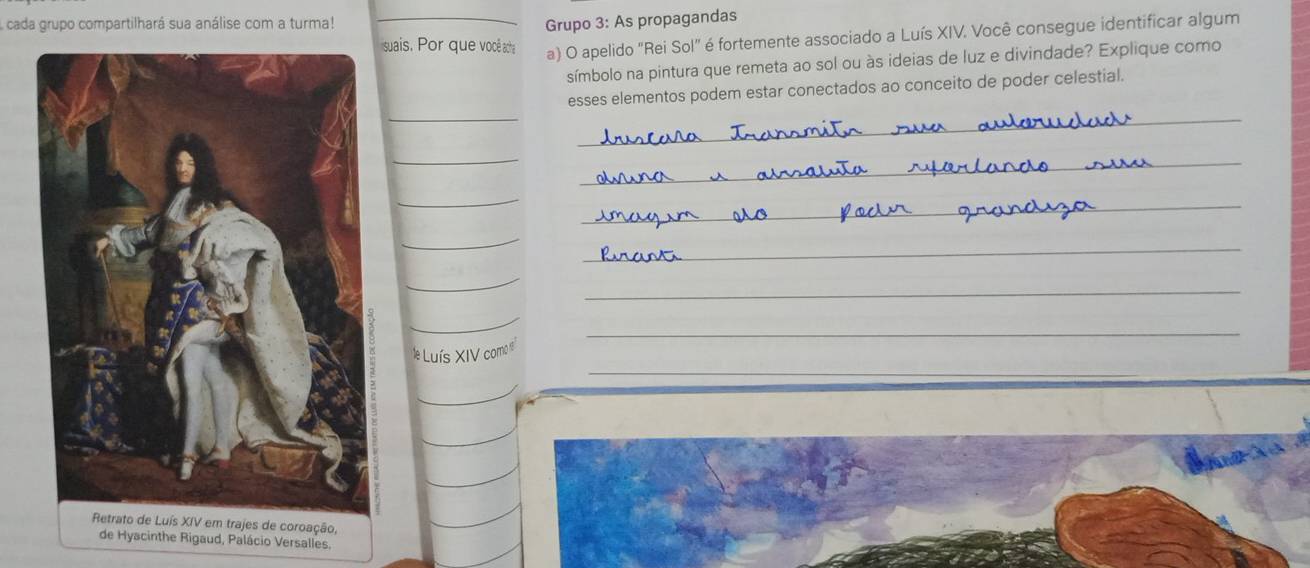 cada grupo compartilhará sua análise com a turma!
suais. Por que você
Luís XIV como
Retrato de Luís XIV em trajes de coroação,
de Hyacinthe Rigaud, Palácio Versalles.
Grupo 3: As propagandas
a) O apelido "Rei Sol" é fortemente associado a Luís XIV. Você consegue identificar algum
símbolo na pintura que remeta ao sol ou às ideias de luz e divindade? Explique como
esses elementos podem estar conectados ao conceito de poder celestial.
buscava Transmitir sua autorudade
divina e absoluta reforlando sua
imagem do poder grandeza
Perante